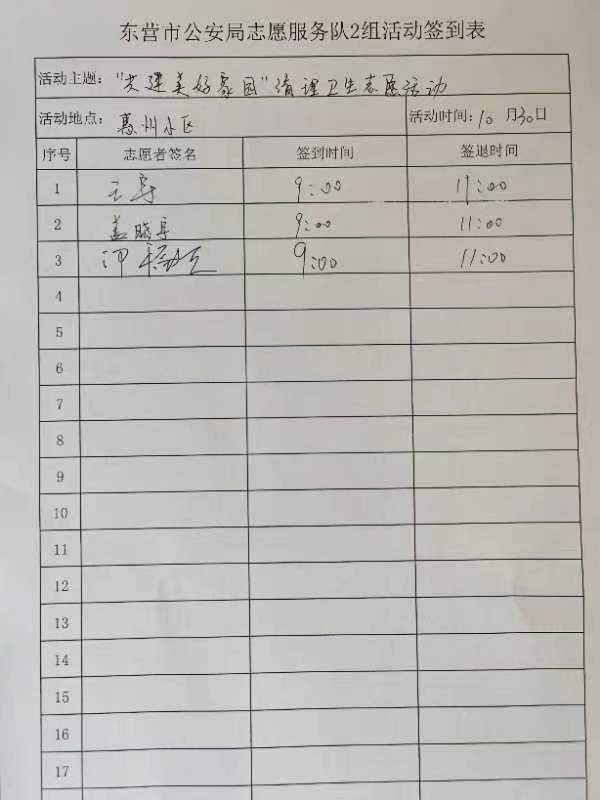 东营市公安局志愿服务队2组活动签到表
活动主题: "共建美好家园"清理卫生志愿活动
活动地点: 惠州小区 活动时间: 10月30日
序号 志愿者签名 签到时间 签退时间
1 王 9:00 11:00
2 盖晓 9:00 11:00
3 9:00 11:00
4
5
6
7
8
9
10
11
12
13
14
15
16
17